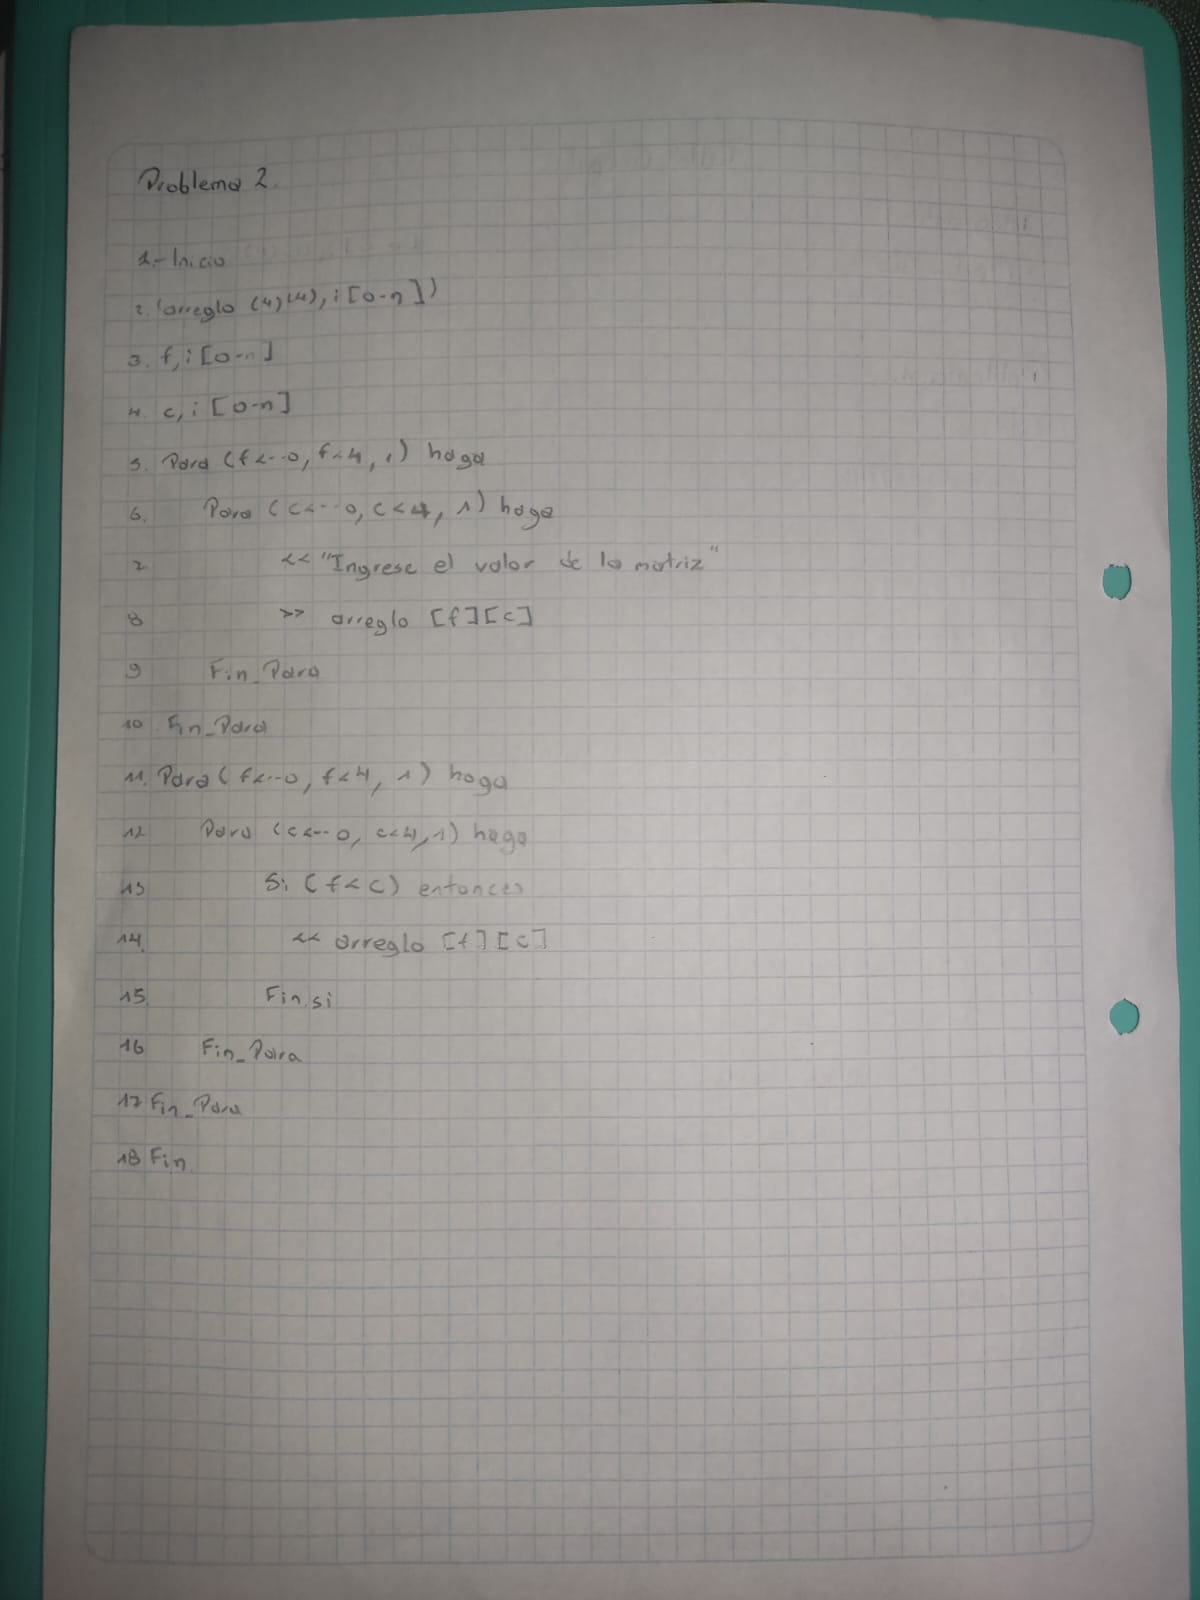 Problema 2.
1.- Inicio
2. (arreglo (4)(4), i [0-n])
3. f, i [0-n]
4. c, i [0-n]
5. Para (f<--0, f<4, 1) haga
6. Para (c<--0, c<4, 1) haga
7 << "Ingrese el valor de la matriz"
8 >> arreglo [f][c]
9 Fin_Para
10. Fin_Para
11. Para (f<--0, f<4, 1) haga
12 Para (c<--0, c<4, 1) haga
13 Si (f<c) entonces
14. << arreglo [f][c]
15. Fin_si
16 Fin_Para
17 Fin_Para
18 Fin.